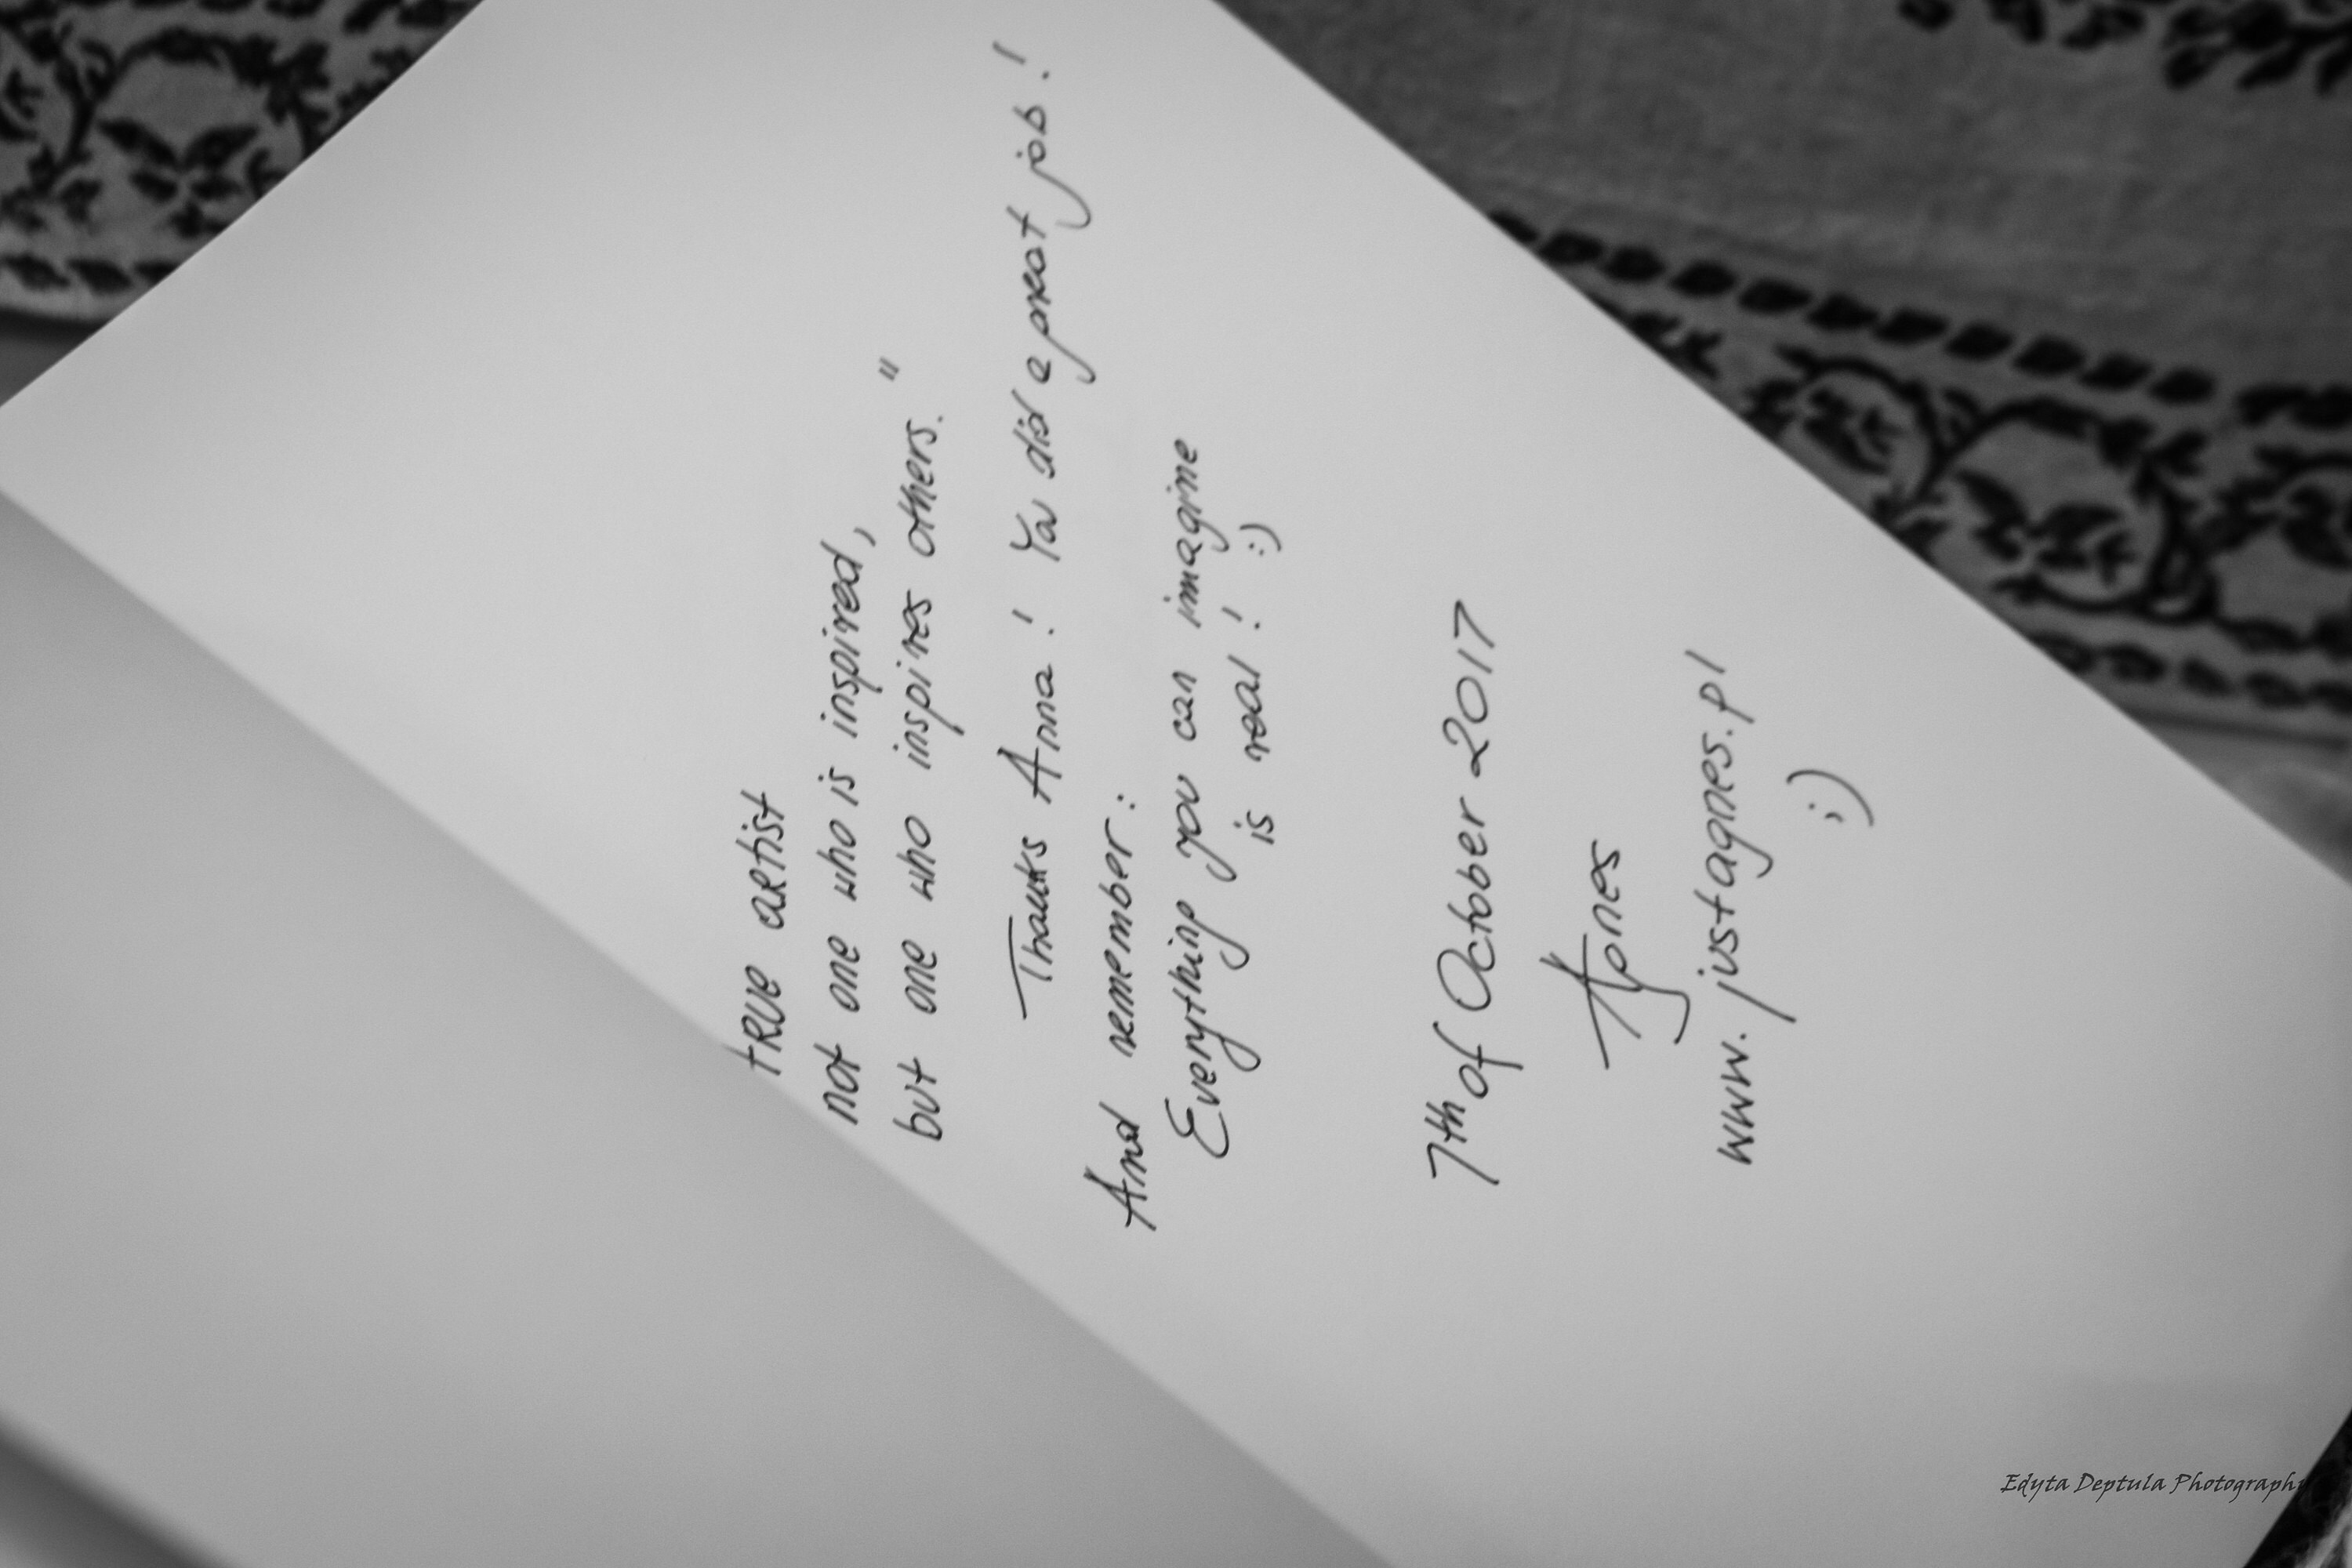 true artist
not one who is inspired,
but one who inspires others."
Thanks Anna! You did a great job!
And remember:
Everything you can imagine
is real! :)
7th of October 2017
Agnes
www.justagnes.pl
;)
Edyta Deptula Photography